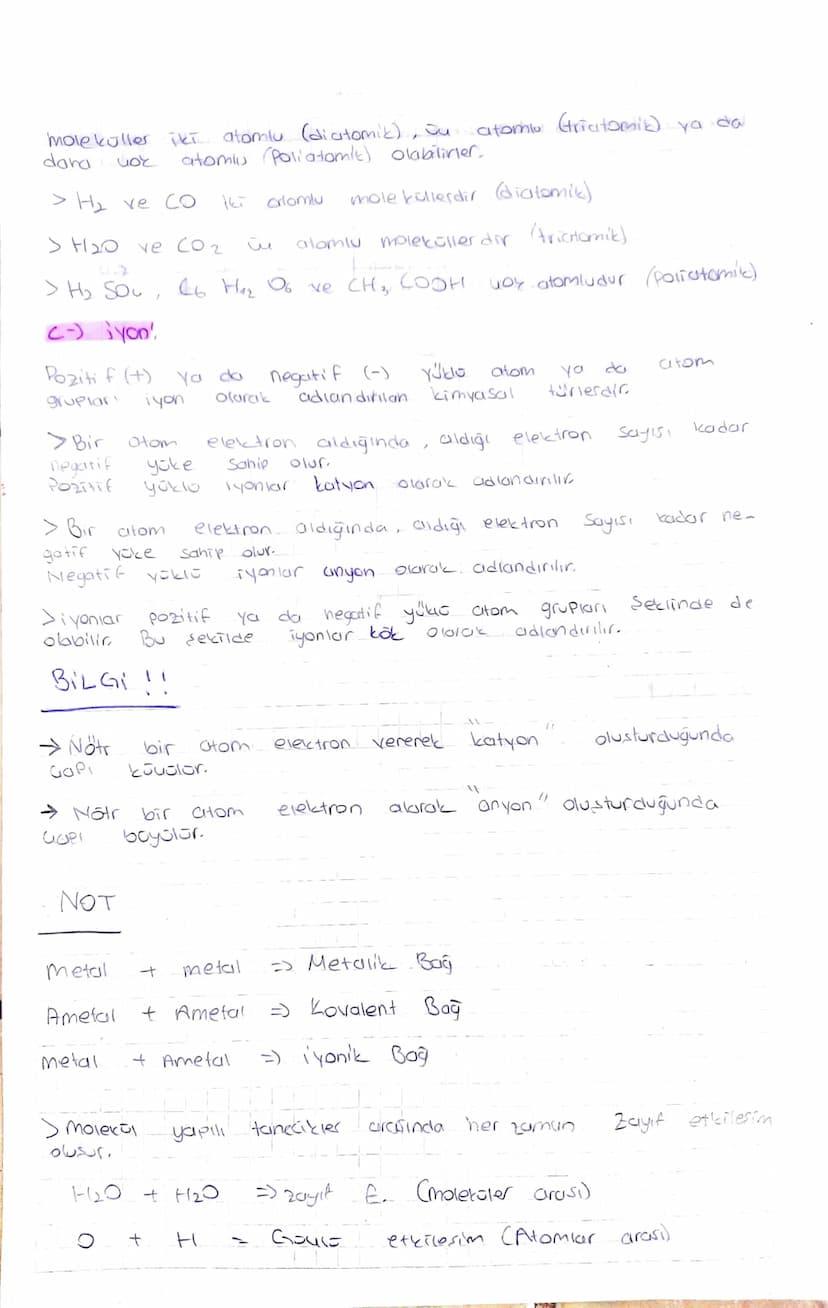 moleküller iki atomlu (diatomik), üç atomlu (triatomik) ya da
daha çok atomlu (poliatomik) olabilirler.
> H2 ve CO iki atomlu moleküllerdir (diatomik)
> H2O ve CO2 üç atomlu moleküllerdir (triatomik)
> H2 SO4, C6 H12 O6 ve CH3 COOH çok atomludur (poliatomik)
C-) iyon:
Pozitif (+) ya da negatif (-) yüklü atom ya da atom
grupları iyon olarak adlandırılan kimyasal türlerdir.
> Bir atom elektron aldığında, aldığı elektron sayısı kadar
negatif yüke sahip olur.
Pozitif yüklü iyonlar katyon olarak adlandırılır.
> Bir atom elektron aldığında, aldığı elektron sayısı kadar ne-
gatif yüke sahip olur.
Negatif yüklü iyonlar anyon olarak adlandırılır.
> iyonlar pozitif ya da negatif yüklü atom grupları şeklinde de
olabilir. Bu şekilde iyonlar kök olarak adlandırılır.
BİLGİ !!
→ Nötr bir atom elektron vererek "katyon" oluşturduğunda
çapı küçülür.
→ Nötr bir atom elektron alarak "anyon" oluşturduğunda
çapı büyülür.
NOT
Metal + metal => Metalik Bağ
Ametal + Ametal => Kovalent Bağ
Metal + Ametal => iyonik Bağ
> Molekül yapılı tanecikler arasında her zaman zayıf etkileşim
oluşur.
H2O + H2O => zayıf E. (moleküler arası)
O + H = Güçlü etkileşim (Atomlar arası)